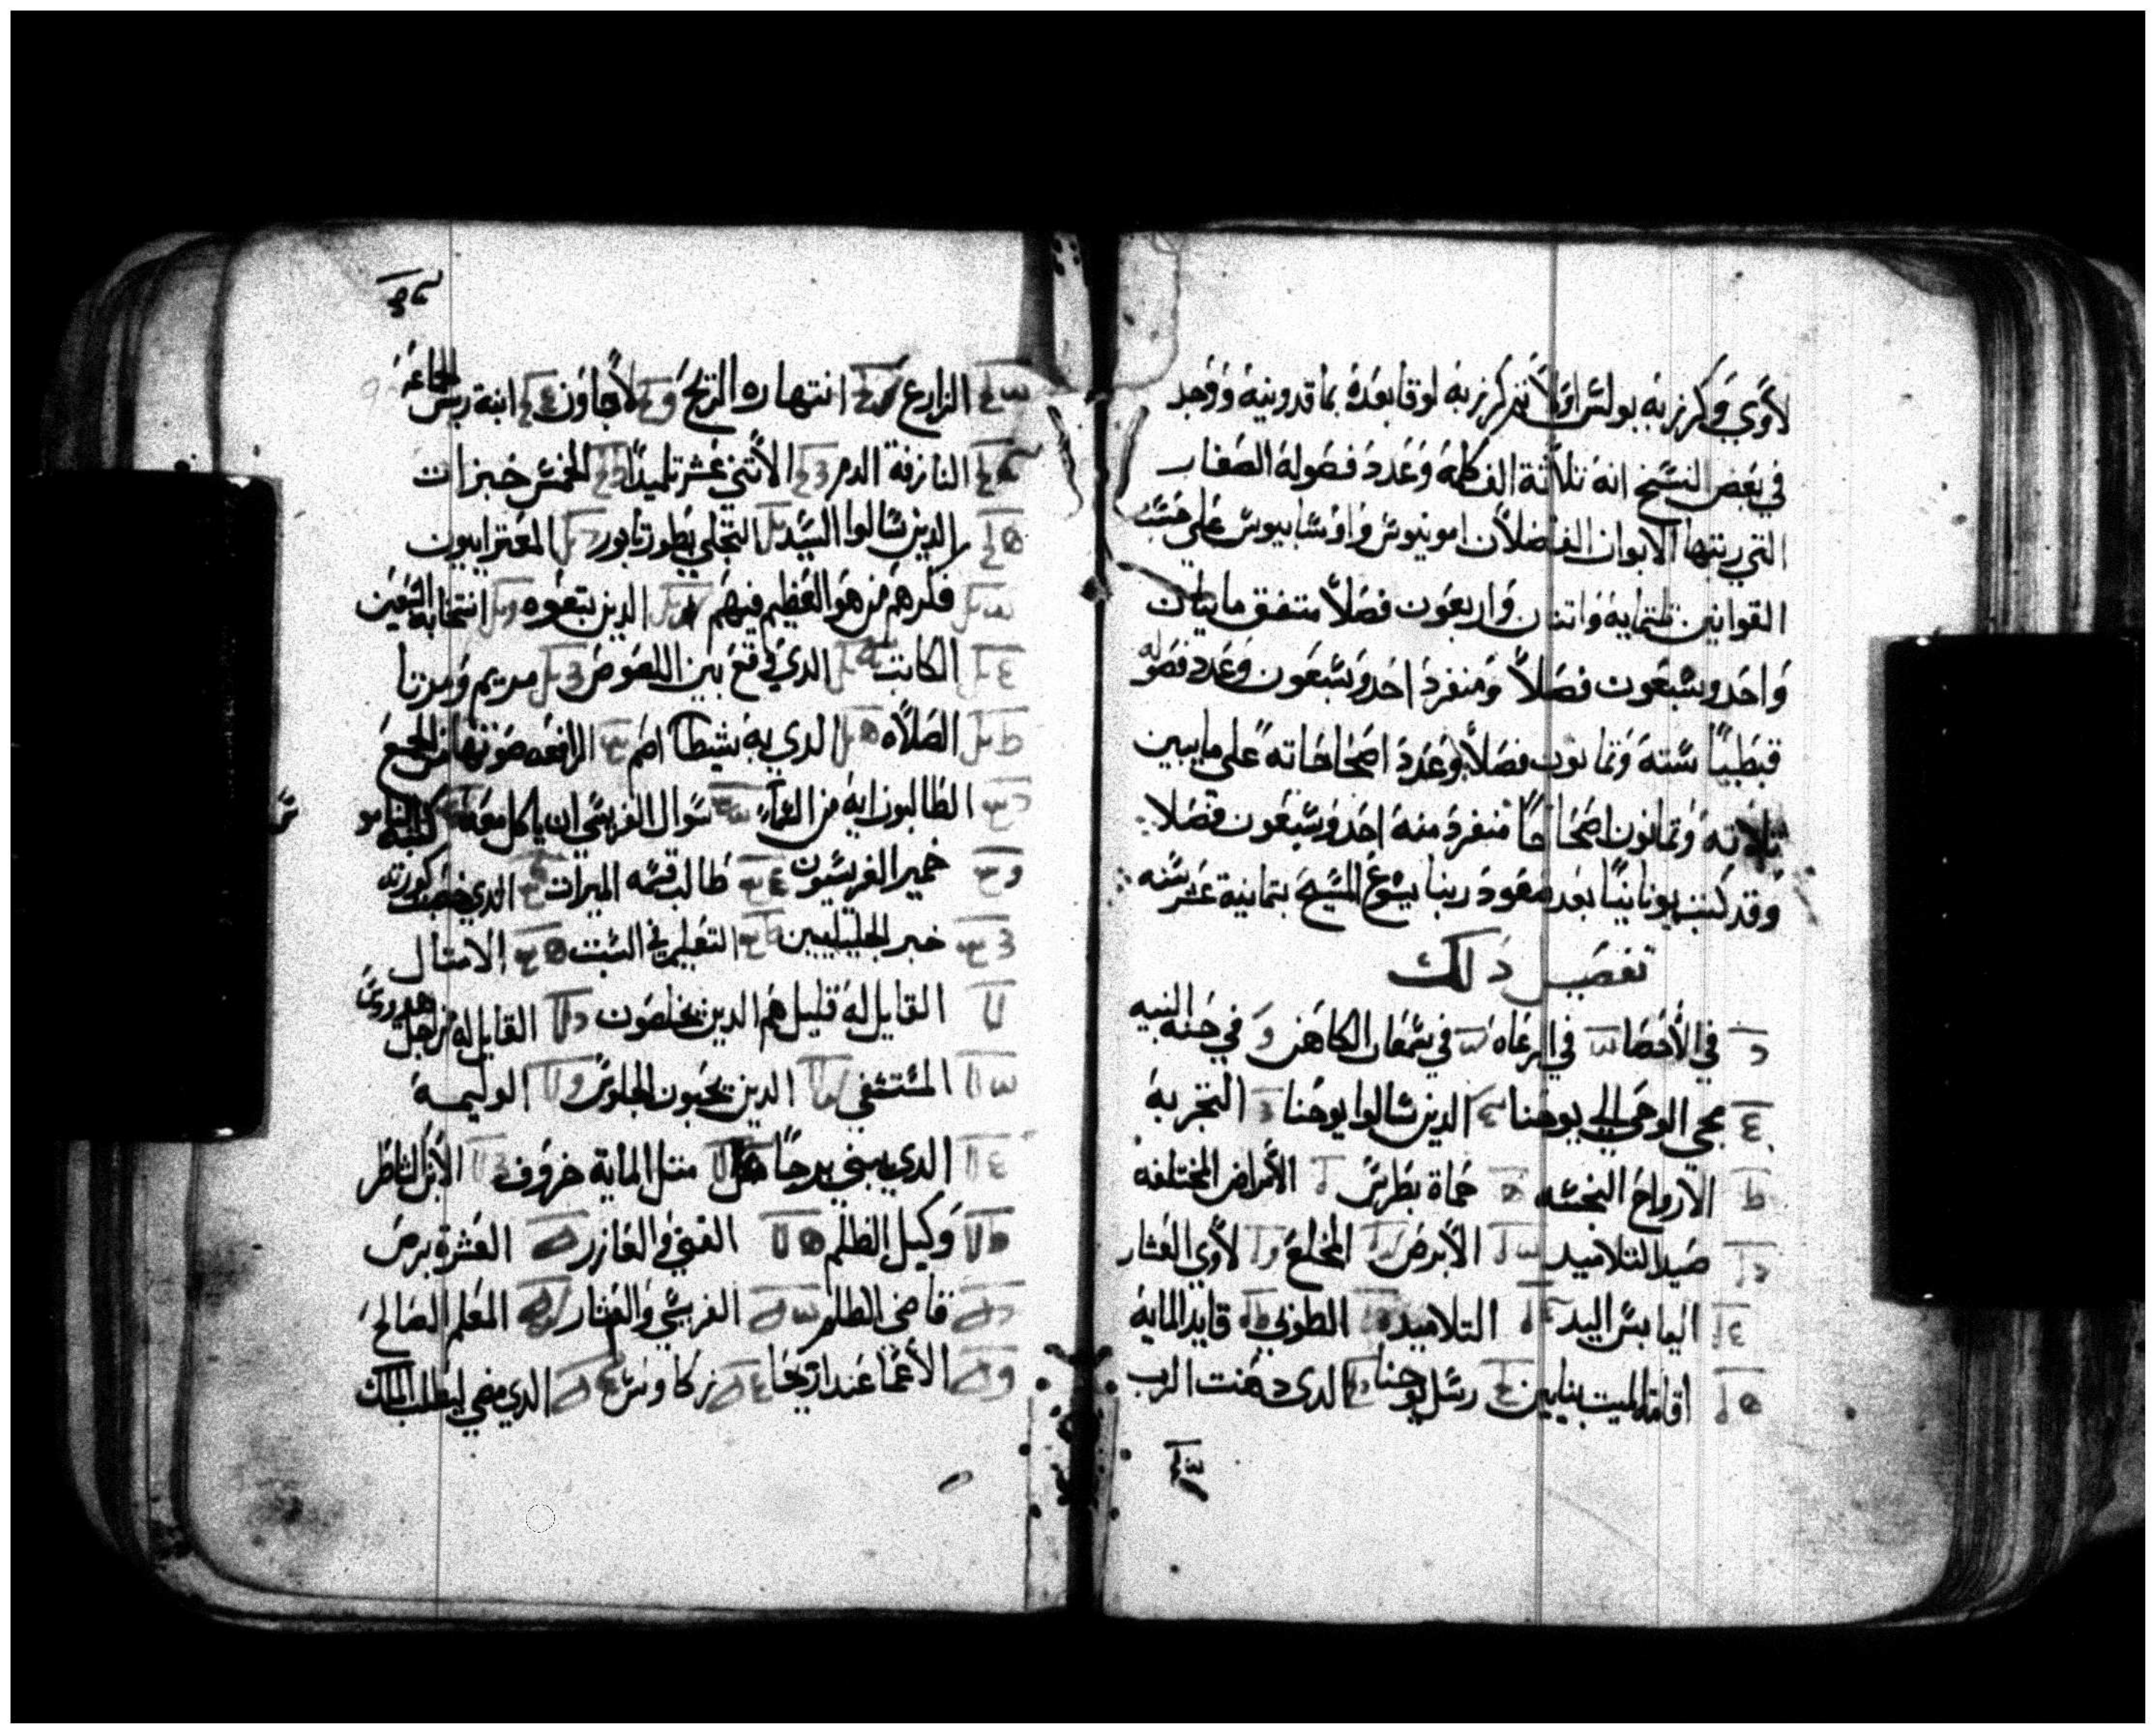 لأوي وكرز به بولس اولاً ثم كرز به لوقا بعده بماقدونية ووجد
في بعض النسخ انه ثلاثة الف كلمة وعدد فصوله الصغار
التي رتبها الابوان الفاضلان امونيوس واوسابيوس على حسب
القوانين ثلثماية واثنان واربعون فصلاً متفق مايتان
واحد وسبعون فصلاً ومنفرد احد وسبعون وعدد فصوله
قبطياً ستة وثمانون فصلاً وعدد اصحاحاته على مايبين
ثلاثة وثمانون اصحاحاً منفرد منه احد وسبعون فصلا
وقد كتب يونانياً بعد صعود ربنا يسوع المسيح بثمانية عشر سنه
تفصيل ذلك
في الأحصا في الرعاه في سمعان الكاهن في حنه النبيه
مجي الوحي الي يوحنا الذين سالوا يوحنا التجربه
الارواح النجسه حماة بطرس الأمراض المختلفه
صيد التلاميد الأبرص المخلع لأوي العشار
اليابس اليد التلاميد الطوبي قايد الماية
اقامة الميت بنايين رسل يوحنا الدي دهنت الرب
الزارع انتهاره الريح لاجاون ابنة ريس الجماعه
النازفة الدم الأثني عشر تلميداً الخمس خبزات
الدين سالوا السيد التجلي بطور تابور المعترا بيون
فكرهم من هو العظيم فيهم الدين يتبعوه انتخابه السبعين
الكاتب الدي وقع بين اللصوص مريم ومرتا
الصلاه الدي به شيطان اصم الرافعه صوتها من الجمع
الطالبون ايه من السماء سوال الفريسي ان ياكل معه
خمير الفريسيون طالب قسمه الميرات الدي خصبت كورته
خبر الجليليين التعليم في السبت الامثال
القايل له قليل هم الدين يخلصون القايل له من اجل هيرودس
المستسقي الدين يحبون الجلوس الوليمه
الدي يبني برجاً مثل الماية خروف الأبن الشاطر
وكيل الظلم الغني والعازر العشرة برص
قاضي الظلم الفريسي والعشار المعلم الصالح
الأعما عند اريحا زكاوس الدي مضي ليطلب الملك